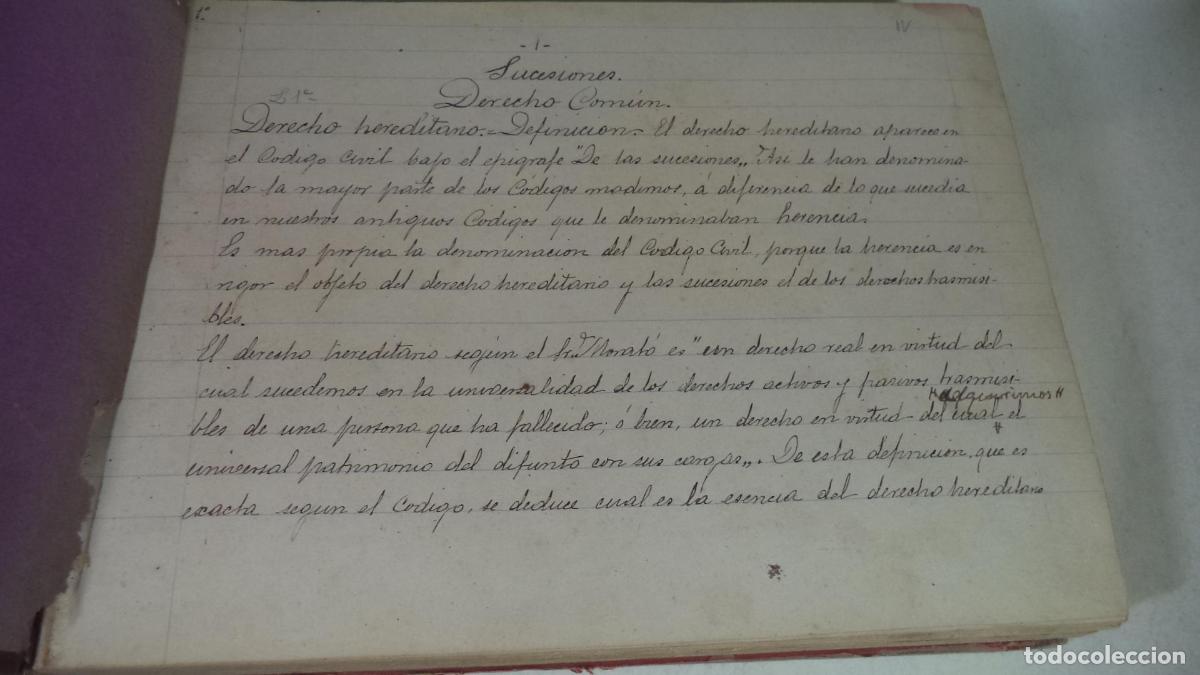 1º
IV
-1-
Sucesiones.
L 1ª
Derecho Común.
Derecho hereditario.=Definicion.- El derecho hereditario aparece en
el Codigo Civil bajo el epigrafe "De las sucesiones„. Asi le han denomina-
do la mayor parte de los Códigos modernos, á diferencia de lo que sucedia
en nuestros antiguos Codigos que le denominaban herencia.
Es mas propia la denominacion del Codigo Civil, porque la herencia es en
rigor el objeto del derecho hereditario y las sucesiones el de los derechos trasmisi-
bles.
El derecho hereditario según el Sr. Morató es "un derecho real en virtud del
cual sucedemos en la universalidad de los derechos activos y pasivos trasmisi-
"adquirimos"
bles de una persona que ha fallecido; ó bien, un derecho en virtud del cual el
universal patrimonio del difunto con sus cargas„. De esta definicion, que es
exacta según el Codigo, se deduce cual es la esencia del derecho hereditario
todocoleccion